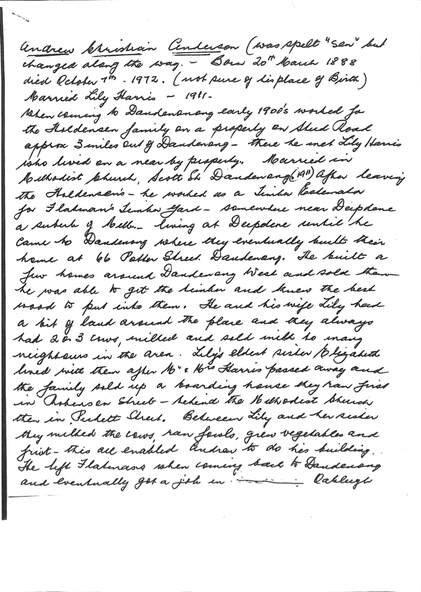 Andrew Christian Anderson (was spelt "sen" but
changed along the way. - Born 20th March 1888
died October 7th - 1972. (not sure of his place of Birth)
Married Lily Harris - 1911.
When coming to Dandenong early 1900's worked for
the Holdensen family on a property on Stud Road
approx 3 miles out of Dandenong - there he met Lily Harris
who lived on a near by property. Married in
Methodist Church, Scott St. Dandenong (1911) After leaving
the Holdensons - he worked as a Timber Estimator
for Flatman's Timber Yard - somewhere near Deepdene
a suburb of Melb. - living at Deepdene until he
came to Dandenong where they eventually built their
home at 66 Potter Street. Dandenong. He built a
few homes around Dandenong West and sold them
he was able to get the timber and knew the best
wood to put into them. He and his wife Lily had
a bit of land around the place and they always
had 2 or 3 cows, milked and sold milk to many
neighbours in the area. Lily's eldest sister Elizabeth
lived with them after Mr & Mrs Harris passed away and
the family sold up a boarding house they ran first
in Robinson Street - behind the Methodist Church
then in Pickett Street. Between Lily and her sister
they milked the cows, ran fowls, grew vegetables and
fruit - this all enabled Andrew to do his building.
He left Flatmans when coming back to Dandenong
and eventually got a job in Oakleigh